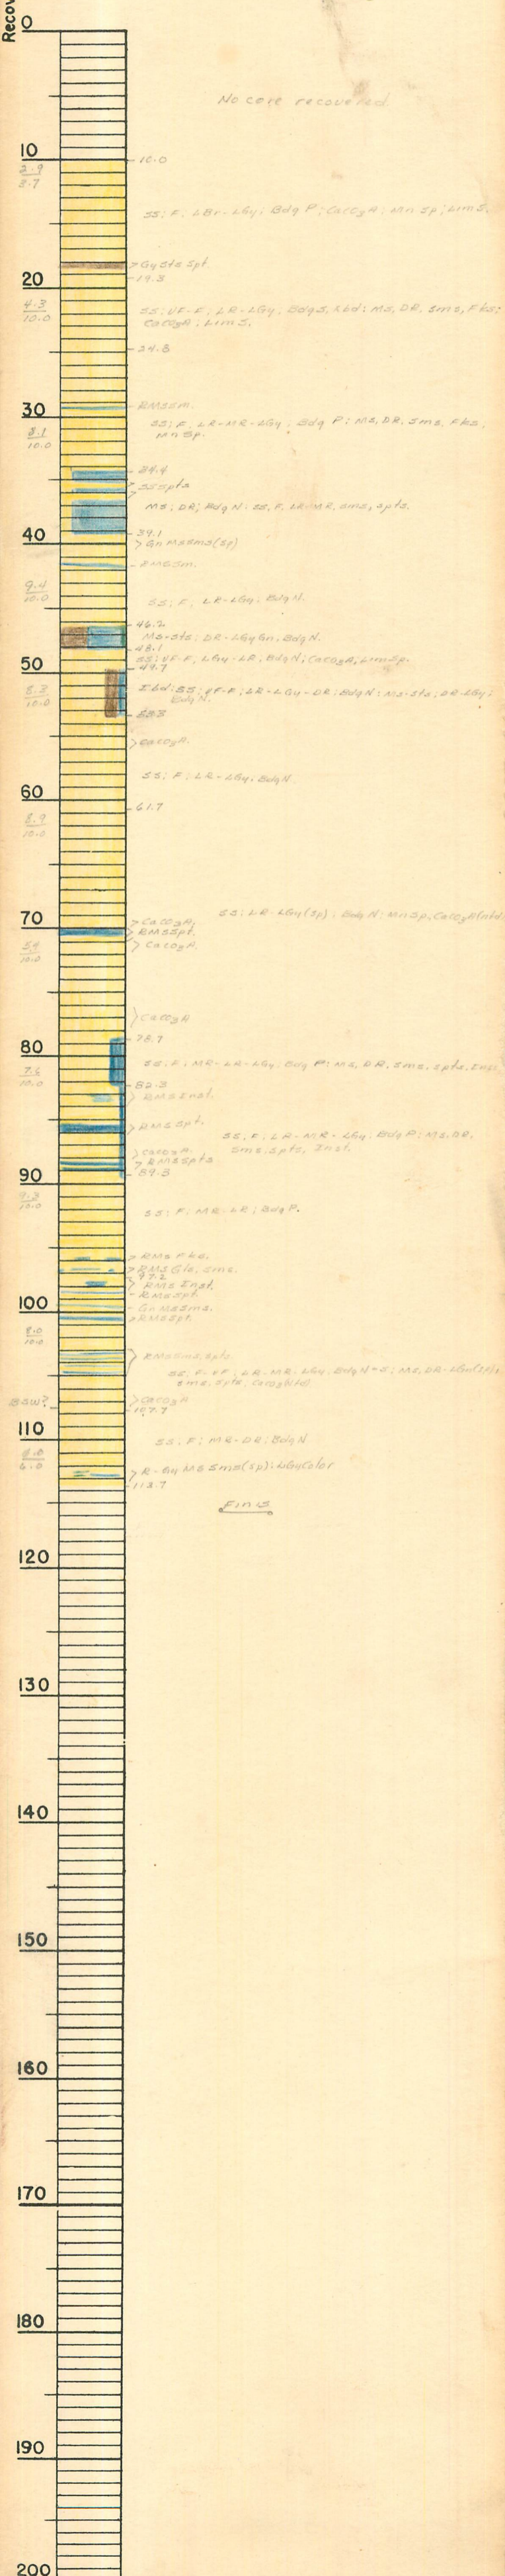 Recov
0
No core recovered.
10
10.0
2.9
3.7
SS; F, LBr-LGy; Bdg P; CaCO3A; Mn Sp; Lim S.
> Gy Sts Spt.
19.3
20
4.3
10.0
SS; VF-F; LR-LGy; Bdg S, Xbd; MS, DR, sms, Fks;
CaCO3A; Lim S.
24.8
RMS Sm.
30
SS; F, LR-MR-LGy; Bdg P; MS, DR, sms, Fks,
Mn Sp.
8.1
10.0
34.4
> SS Spts
MS; DR; Bdg N; SS, F, LR-MR, sms, spts.
39.1
40
> Gn MS Sms (sp)
RMS Sm.
9.4
10.0
SS; F; LR-LGy; Bdg N.
46.2
MS-sts; DR-LGy Gn, Bdg N.
48.1
SS; VF-F; LGy-LR; Bdg N; CaCO3A, Lim Sp.
49.7
50
8.3
10.0
Ibd: SS; VF-F; LR-LGy-DR; Bdg N; MS-sts; DR-LGy;
Bdg N.
53.3
} CaCO3A.
SS; F; LR-LGy, Bdg N
60
61.7
8.9
10.0
SS; LR-LGy (sp); Bdg N; Mn Sp, CaCO3A (ntd)
> CaCO3A;
70
> RMS Spt.
> CaCO3A.
5.9
10.0
} CaCO3A
78.7
80
7.6
10.0
SS; F; MR-LR-LGy; Bdg P; MS, DR, sms, spts, Inst.
82.3
} RMS Inst.
> RMS Spt.
SS; F; LR-MR-LGy; Bdg P; MS, DR,
sms, spts, Inst.
} CaCO3A.
> RMS Spts
89.3
90
9.3
10.0
SS; F; MR-LR; Bdg P.
> RMS Fks.
> RMS Gls, sms.
97.2
> RMS Inst.
RMS Spt.
Gn MS Sms.
100
RMS Spt.
8.0
10.0
} RMS Sms, spts.
SS; F-VF; LR-MR-LGy; Bdg N-S; MS, DR-LGn (sp),
sms, spts; CaCO3
BSW?
> CaCO3A
107.7
110
SS; F; MR-DR; Bdg N
6.0
> R-Gy MS Sms (sp); LGy Color
113.7
Finis
120
130
140
150
160
170
180
190
200